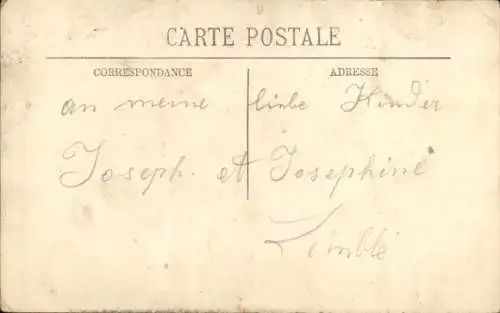 CARTE POSTALE
CORRESPONDANCE ADRESSE
an meine liebe Kinder
Joseph. et Josephine